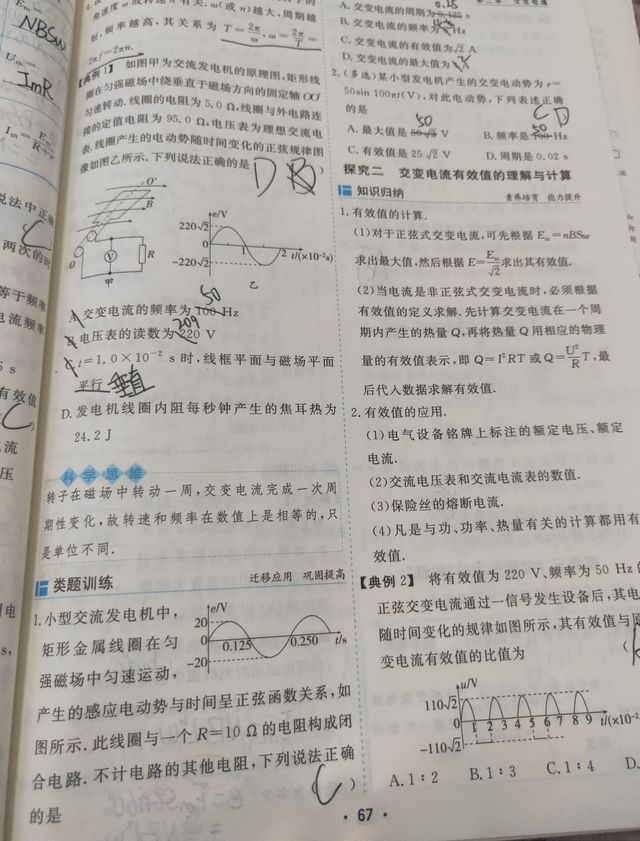 NBSω
ImR
角速度 ω 或转速 n 有关, ω(或 n)越大, 周期越
短, 频率越高, 其关系为 T=2π/ω, ω=2π/T=
2πf=2πn.
【典例1】 如图甲为交流发电机的原理图, 矩形线
圈在匀强磁场中绕垂直于磁场方向的固定轴 OO′
匀速转动, 线圈的电阻为 5.0 Ω, 线圈与外电路连
接的定值电阻为 95.0 Ω, 电压表为理想交流电
表, 线圈产生的电动势随时间变化的正弦规律图
像如图乙所示. 下列说法正确的是
D
O′
B
V
R
O
甲
e/V
220√2
0
-220√2
1
2
t/(×10⁻²s)
乙
50
A. 交变电流的频率为 100 Hz
209
B. 电压表的读数为 220 V
C. t=1.0×10⁻² s 时, 线框平面与磁场平面
平行 垂直
D. 发电机线圈内阻每秒钟产生的焦耳热为
24.2 J
科学思维
转子在磁场中转动一周, 交变电流完成一次周
期性变化, 故转速和频率在数值上是相等的, 只
是单位不同.
类题训练
迁移应用 巩固提高
1. 小型交流发电机中,
矩形金属线圈在匀
强磁场中匀速运动,
e/V
20
0
-20
0.125
0.250
t/s
产生的感应电动势与时间呈正弦函数关系, 如
图所示. 此线圈与一个 R=10 Ω 的电阻构成闭
合电路. 不计电路的其他电阻, 下列说法正确
的是
( C )
0.25
A. 交变电流的周期为 0.125 s
B. 交变电流的频率为 Hz
C. 交变电流的有效值为 √2 A
D. 交变电流的最大值为
2. (多选)某小型发电机产生的交变电动势为 e=
50sin 100πt(V), 对此电动势, 下列表述正确
的是
CD
50
50
A. 最大值是 50√2 V
B. 频率是 100 Hz
C. 有效值是 25√2 V
D. 周期是 0.02 s
探究二 交变电流有效值的理解与计算
知识归纳
素养培育 能力提升
1. 有效值的计算.
(1)对于正弦式交变电流, 可先根据 Eₘ=nBSω
求出最大值, 然后根据 E=Eₘ/√2 求出其有效值.
(2)当电流是非正弦式交变电流时, 必须根据
有效值的定义求解. 先计算交变电流在一个周
期内产生的热量 Q, 再将热量 Q 用相应的物理
量的有效值表示, 即 Q=I²RT 或 Q=U²/R T, 最
后代入数据求解有效值.
2. 有效值的应用.
(1)电气设备铭牌上标注的额定电压、额定
电流.
(2)交流电压表和交流电流表的数值.
(3)保险丝的熔断电流.
(4)凡是与功、功率、热量有关的计算都用有
效值.
【典例2】 将有效值为 220 V、频率为 50 Hz
正弦交变电流通过一信号发生设备后, 其电
随时间变化的规律如图所示, 其有效值与
变电流有效值的比值为
u/V
110√2
0
-110√2
1 2 3 4 5 6 7 8 9
t/(×10⁻²
A. 1∶2
B. 1∶3
C. 1∶4
D.
· 67 ·